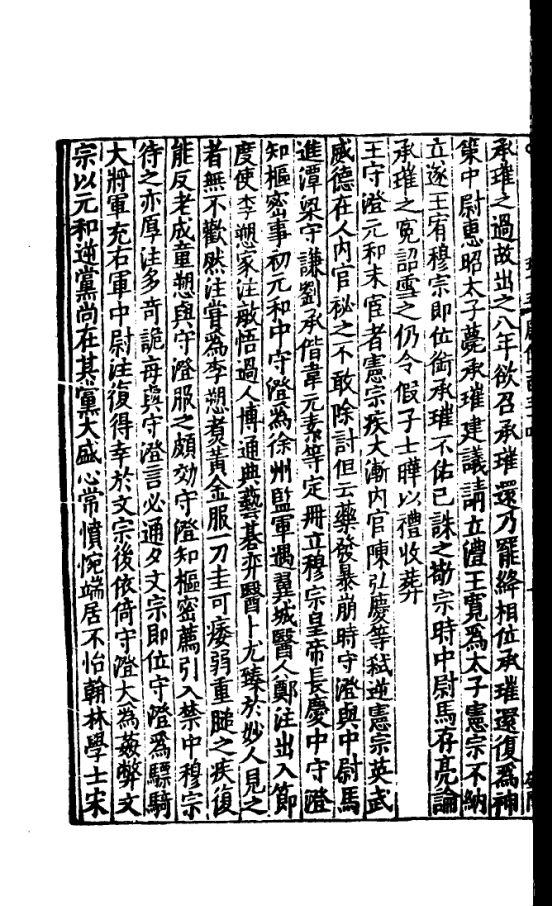 承璀之過故出之八年欲召承璀還乃罷絳相位承璀還復爲神
策中尉惠昭太子薨承璀建議請立澧王寬爲太子憲宗不納
立遂王宥穆宗即位銜承璀不佑已誅之敬宗時中尉馬存亮論
承璀之冤詔雪之仍令假子士曄以禮收葬
王守澄元和末宦者憲宗疾大漸内官陳弘慶等弒逆憲宗英武
威德在人内官祕之不敢除討但云藥發暴崩時守澄與中尉馬
進潭梁守謙劉承偕韋元素等定册立穆宗皇帝長慶中守澄
知樞密事初元和中守澄爲徐州監軍遇翼城醫人鄭注出入節
度使李愬家注敏悟過人博通典藝棊弈醫卜尤臻於妙人見之
者無不歡然注嘗爲李愬煑黃金服一刀圭可痿弱重膇之疾復
能反老成童愬與守澄服之頗効守澄知樞密薦引入禁中穆宗
待之亦厚注多奇詭每與守澄言必通夕文宗即位守澄爲驃騎
大將軍充右軍中尉注復得幸於文宗後依倚守澄大爲姦弊文
宗以元和逆黨尚在其黨大盛心常憤惋端居不怡翰林學士宋